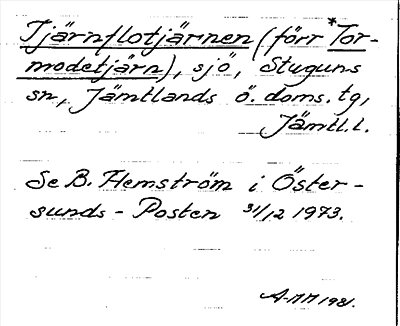 Tjärnflotjärnen (förr *Tor-
modetjärn), sjö, Stuguns
sn, Jämtlands ö. doms. tg,
Jämtl. l.
Se B. Hemström i Öster-
sunds-Posten 31/12 1973.
A-MM 1981.